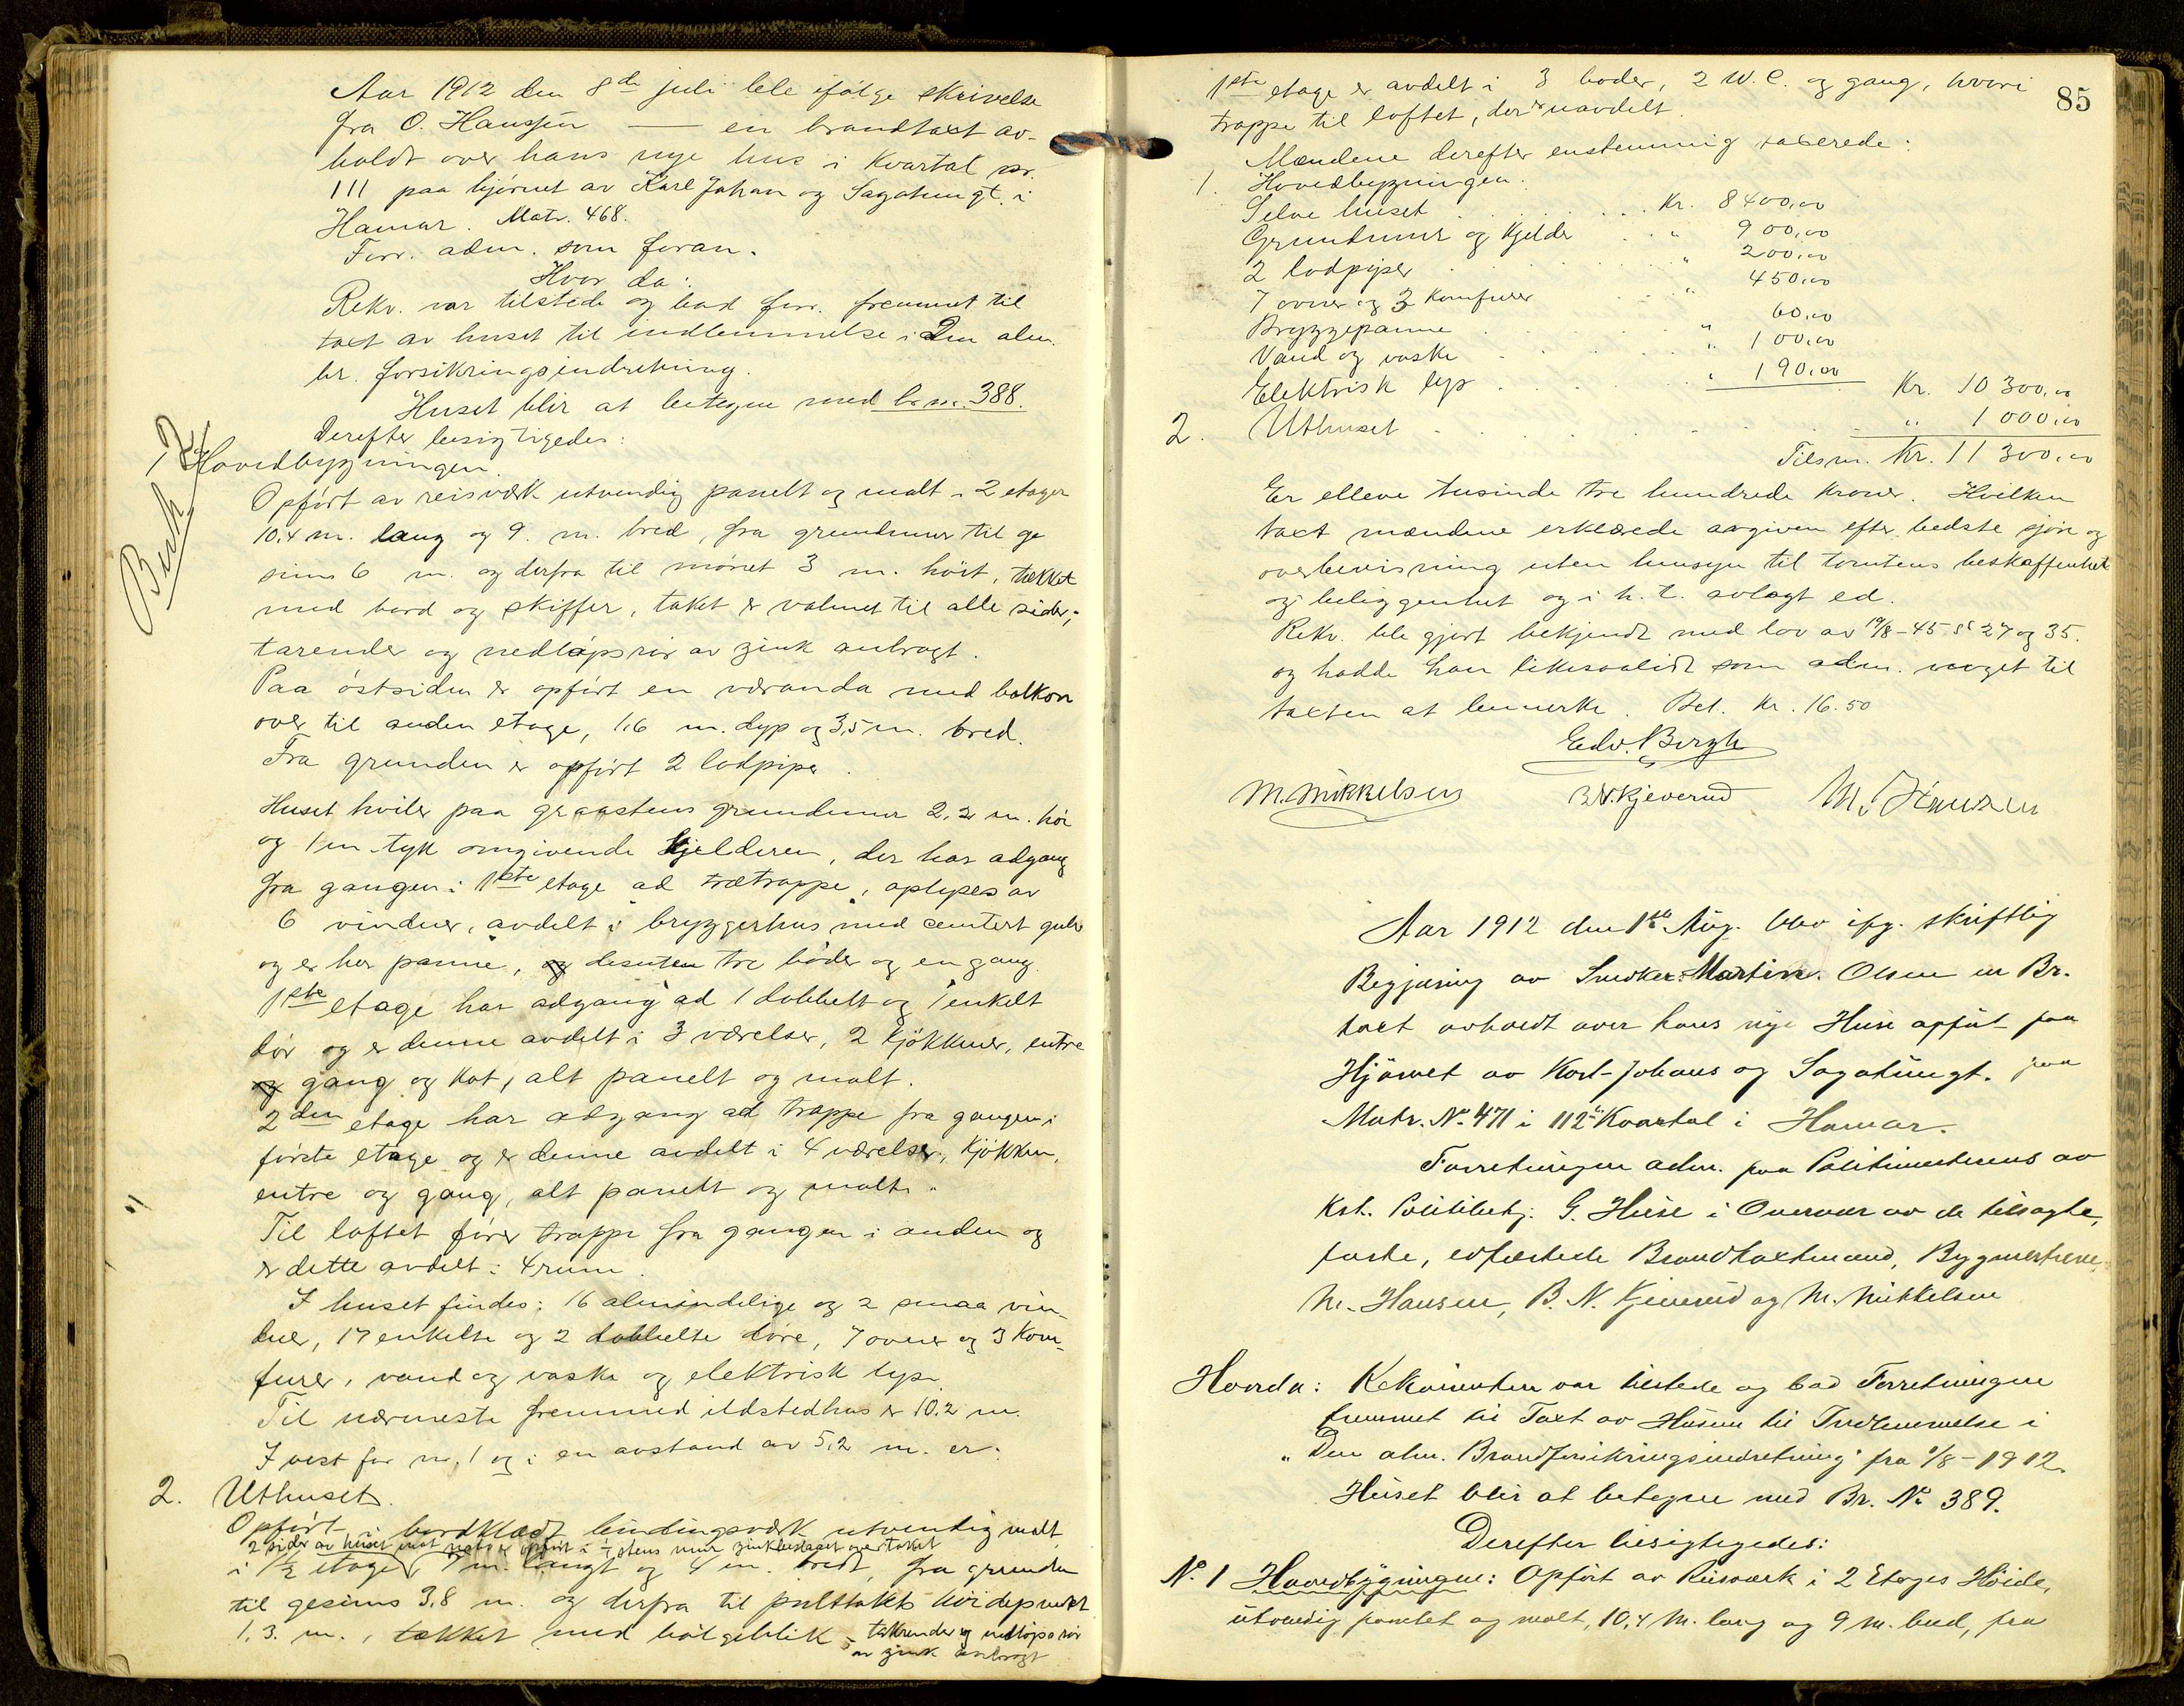 Aar 1912 den 8de juli ble ifølge skrivelse
fra O. Hanssen — en brandtaxt av-
holdt over hans nye hus i Kvartal nr.
111 paa hjørnet av Karl Johan og Sagatungt. i
Hamar. Matr. 468.
Forr. adm. som foran.
Hvor da:
Rekv. var tilstede og bad forr. fremmet til
taxt av huset til indlemmelse i Den alm.
br. forsikringsindretning.
Huset blir at betegne med br. nr. 388.
Derefter besigtigedes:
1, Hovedbygningen.
Opført av reisverk utvendig panelt og malt i 2 etager
10,4 m. lang og 9. m. bred, fra grundmur til ge
sims 6 m. og derfra til mønet 3 m. høit, tækket
med bord og skiffer, taket er valmet til alle sider;
tarender og nedløpsrør av zink anbragt.
Paa østsiden er opført en veranda med balkon
over til anden etage, 1,6 m. dyp og 3,5 m. bred.
Fra grunden er opført 2 lodpiper.
Huset hviler paa graastens grundmur 2,2 m. høi
og 1 m tyk omgivende kjelderen, der har adgang
fra gangen i 1ste etage ad trætrappe, oplyses av
6 vinduer, avdelt i bryggerhus med cemtert gulv
og er her panne, og desuten tre boder og en gang.
1ste etage har adgang ad 1 dobbelt og 1 enkelt
dør og er denne avdelt i 3 værelser, 2 kjøkkener, entre
og gang og kot, alt panelt og malt.
2den etage har adgang ad trappe fra gangen i
første etage og er denne avdelt i 4 værelser, kjøkken,
entre og gang, alt panelt og malt.
Til loftet fører trappe fra gangen i anden og
er dette avdelt i 4 rum.
I huset findes: 16 almindelige og 2 smaa vin-
duer, 17 enkelte og 2 dobbelte døre, 7 ovner og 3 Kom-
furer, vand og vaske og elektrisk lys.
Til nærmeste fremmed ildstedhus er 10,2 m.
I vest for nr. 1 og i en avstand av 5,2 m. er:
2. Uthuset.
Opført i bordklædt bindingsverk utvendig malt
2 sider av huset mot nabo er opført i 1/1 stens mur zinkbeslaaet over taket
i 1½ etage 7 m. langt og 4 m. bredt, fra grunden
til gesims 3,8 m. og derfra til pulttakets høidepunkt
1,3. m., tækket med bølgeblik, takrender og nedløpsrør
av zink anbragt
85
1ste etage er avdelt i 3 boder, 2 W.C. og gang, hvori
trappe til loftet, der er uavdelt.
Mændene derefter enstemmig taxerede:
1. Hovedbygningen.
Selve huset . . . Kr. 8400,00
Grundmur og kjelder . . " 900,00
2 lodpiper . . . " 200,00
7 ovner og 3 komfurer . . " 450,00
Bryggepanne . . . 60,00
Vand og vaske . . . " 100,00
Elektrisk lys . . . " 190,00 Kr. 10300,00
2. Uthuset . . . " 1000,00
Tilsm. Kr. 11300,00
Er elleve tusinde tre hundrede kroner. Hvilken
taxt mændene erklærede avgiven efter bedste skjøn og
overbevisning uten hensyn til tomtens beskaffenhet
og beliggenhet og i h. t. avlagt ed.
Rekv. ble gjort bekjendt med lov av 19/8-45 §§ 27 og 35.
og hadde han likesaalidt som adm. noget til
taxten at bemerke. Bet. Kr. 16.50
Edv. Bergh
M. Mikkelsen B.N. Kjeverud M. Hansen
Aar 1912 den 1ste Aug. blev ifg. skriftlig
Begjæring av Snedker Martin Olsen en Br.
taxt avholdt over hans nye Huse opført paa
Hjørnet av Karl-Johans og Sagatungt. paa
Matr. No. 471 i 112te Kvartal i Hamar.
Forretningen adm. paa Politimesterens av
Kst. Politibetj. G. Huse i Overvær av de tilsagte,
faste, edfæstede Brandtaxtmænd, Bygmestrene
M. Hansen, B. N. Kjeverud og M. Mikkelsen
Hvorda: Rekvirenten var tilstede og bad Forretningen
fremmet til Taxt av Husene til Indlemmelse i
"Den alm. Brandforsikringsindretning" fra 1/8-1912.
Huset blir at betegne med Br. No 389.
Derefter besigtigedes:
No. 1 Hovedbygningen: Opført av Reisværk i 2 Etages Høide,
utvendig panelet og malt, 10,4 M. lang og 9 M. bred, fra